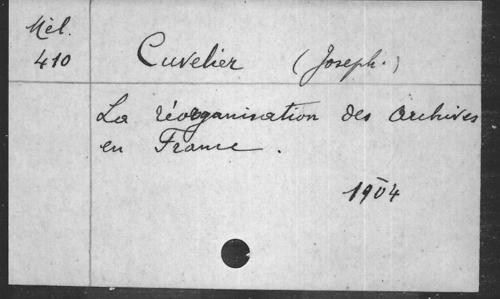 Mél.
410
Cuvelier (Joseph.)
La réorganisation des Archives
en France.
1904